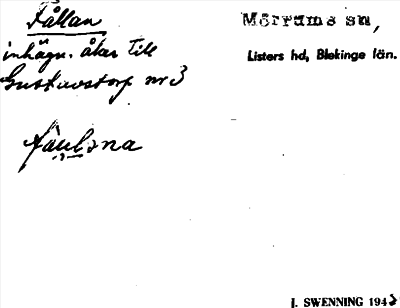 Fållan
Mörrums sn,
inhägn. åker till
Listers hd, Blekinge län.
Gustavstorp nr 3
J. SWENNING 194